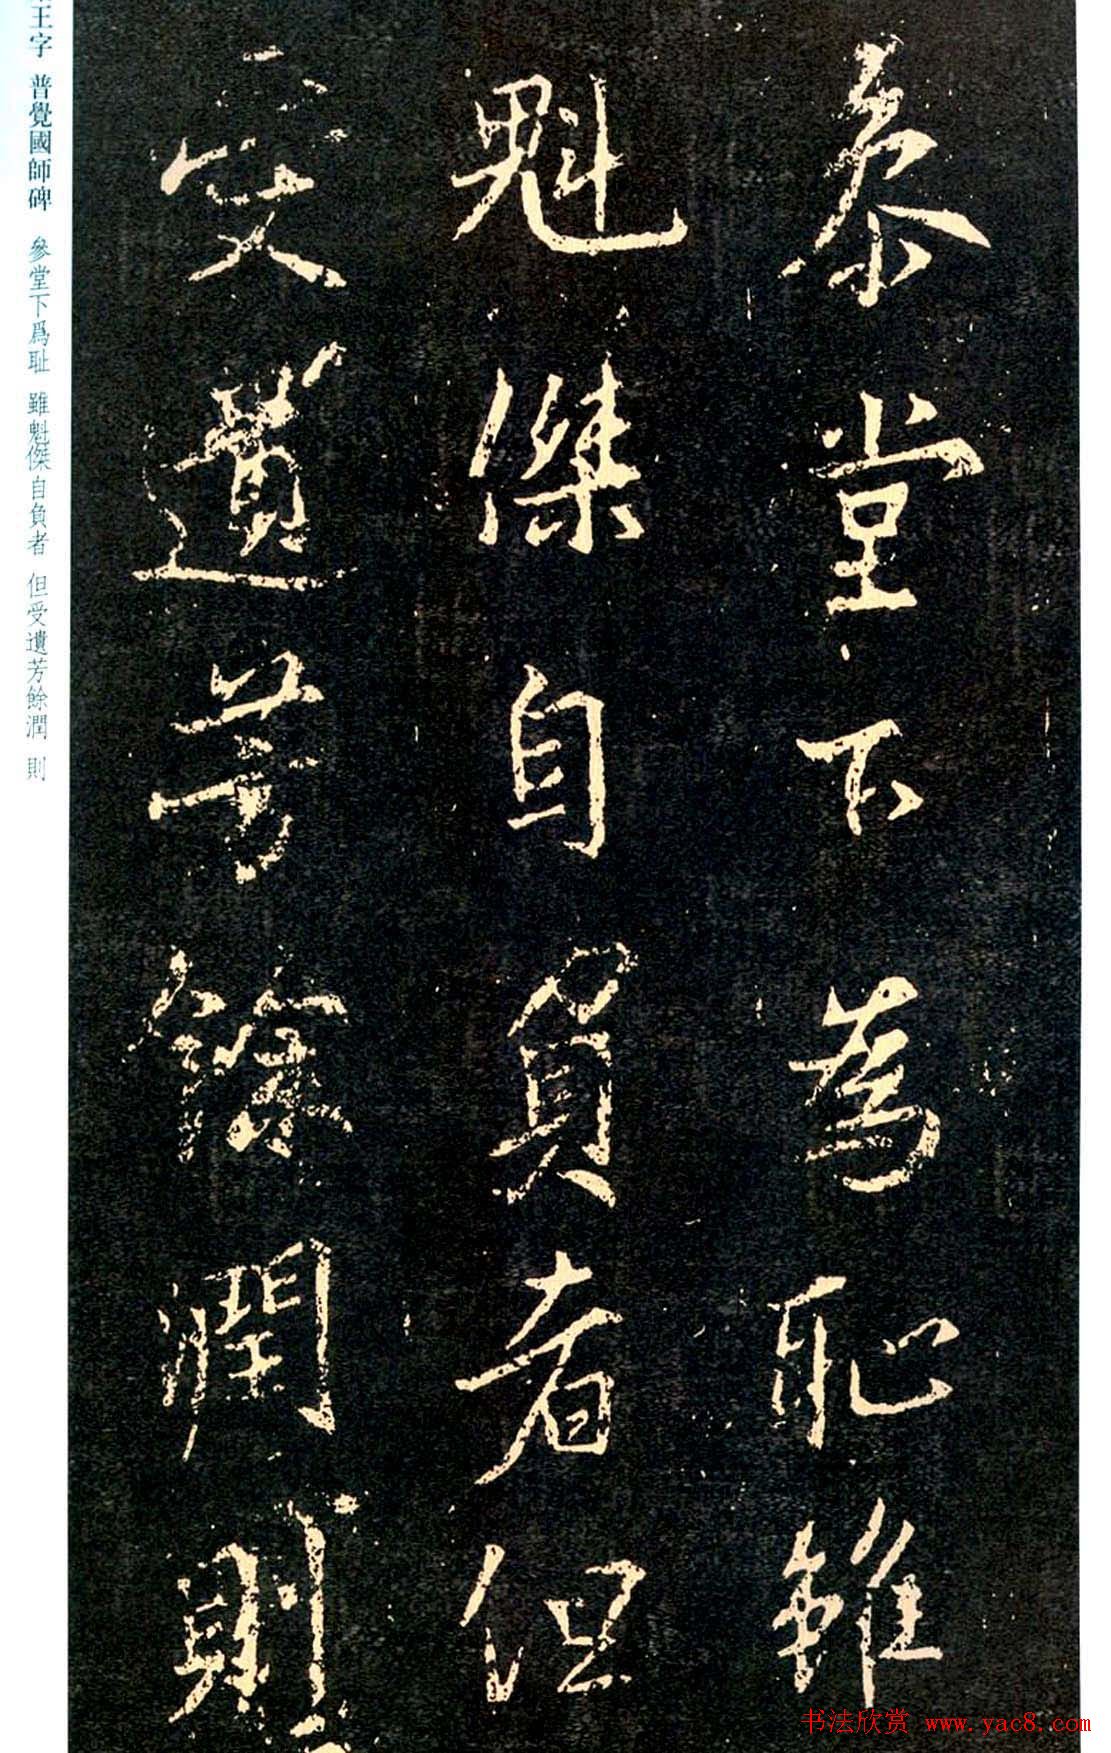 參堂下為恥雖
魁傑自負者但
受遺芳餘潤則
王字 普覺國師碑 參堂下爲耻 雖魁傑自負者 但受遺芳餘潤 則
书法欣赏 www.yac8.com